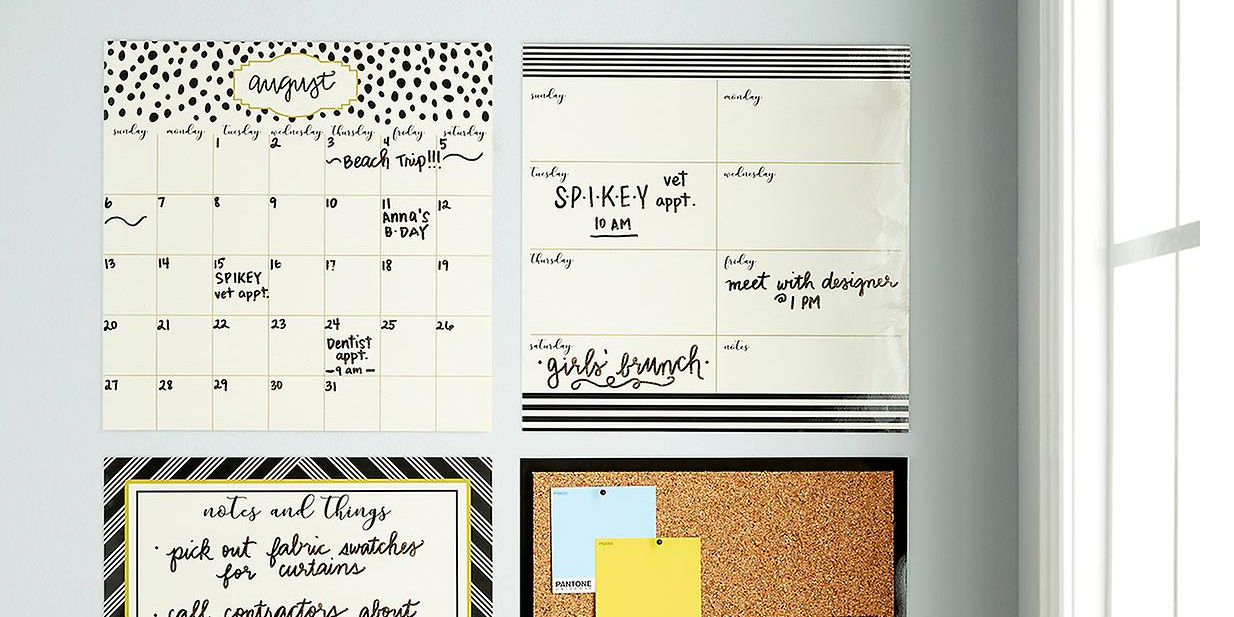 august
sunday monday tuesday wednesday thursday friday saturday
1 2 3 4 5
Beach Trip!!!
6 7 8 9 10 11 12
Anna's
B·DAY
13 14 15 16 17 18 19
SPIKEY
vet appt.
20 21 22 23 24 25 26
Dentist
appt.
-9 am-
27 28 29 30 31
sunday monday
tuesday wednesday
S·P·I·K·E·Y vet
appt.
10 AM
thursday friday
meet with designer
@ 1 PM
saturday notes
·girls' brunch·
notes and things
· pick out fabric swatches
for curtains
· call contractors about
PANTONE